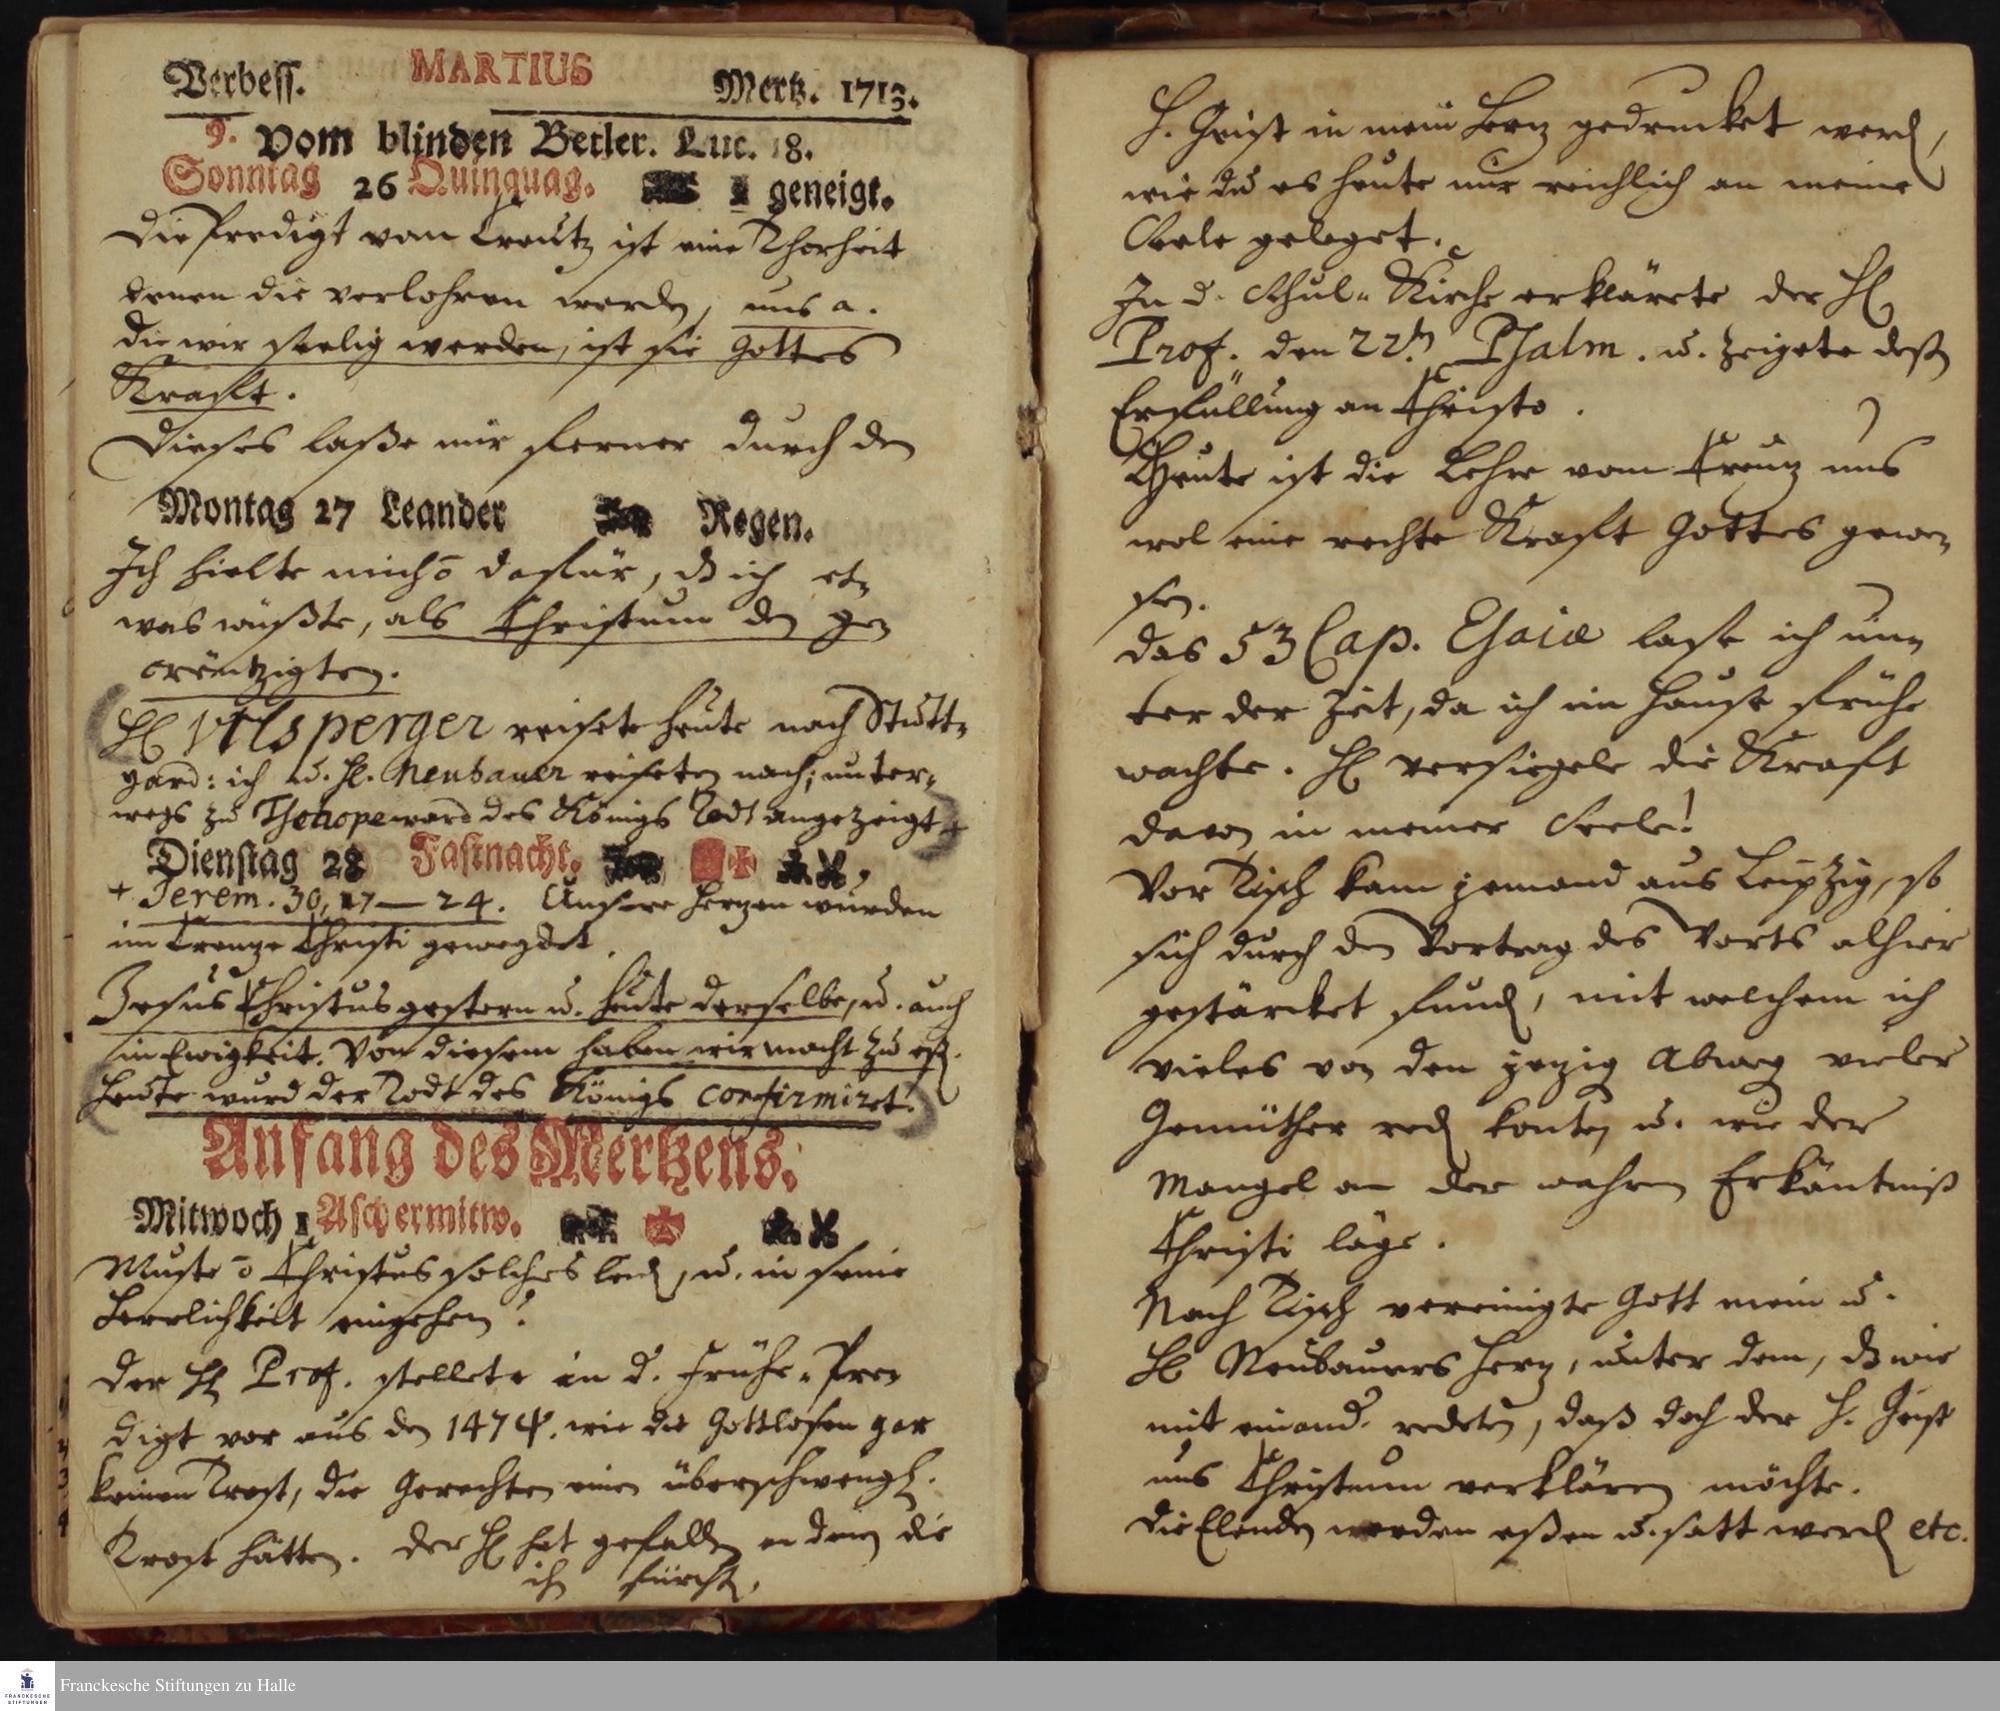 Verbess. MARTIUS Mertz. 1713.
9. Vom blinden Betler. Luc. 18.
Sonntag 26 Quinquag. geneigt.
Die Predigt vom Creutz ist eine Thorheit
denen die verlohren werden, uns a.
die wir seelig werden, ist sie Gottes
Krafft.
Dieses laße mir ferner durch den
Montag 27 Leander Regen.
Ich hielte mich õ dafür, dß ich et-
was wüßte, als Christum den ge-
creutzigten.
H. Urlsperger reisete heute nach Stutt-
gard: ich u. H. Neubauer reiseten nach; unter-
wegs zu ward des Königs Todt angezeigt +
Dienstag 28 Fastnacht.
+ Jerem. 30, 17–24. Unsere Herzen wurden
im Creuze Christi geweydet.
Jesus Christus gestern u. heute derselbe, u. auch
in Ewigkeit. Von diesem haben wir macht zu eß.
Heute wurd der Todt des Königs confirmiret.
Anfang des Mertzens.
Mitwoch 1 Aschermitw.
Muste õ Christus solches leid, u. in seine
Herrlichkeit eingehen?
Der H. Prof. stellete in d. Frühe-Pre-
digt vor aus den 147 Ps. wie die Gottlosen gar
keinen Trost, die Gerechten einen überschwengl.
Trost hätten. Der H. hat gefallen an denen die
ihn fürcht.
H. Geist in mein Herz gedrucket werd,
wie du es heute nur reichlich an meine
Seele geleget.
In d. Schul-Kirche erklärete der H.
Prof. den 22.ten Psalm. u. zeigete deß
Erfüllung an Christo.
Heute ist die Lehre vom Creuz uns
wol eine rechte Krafft Gottes gewe-
sen.
Das 53 Cap. Esaiæ lase ich un-
ter der Zeit, da ich im Hause frühe
wachte. H. versiegele die Kraft
davon in meiner Seele!
Vor Tisch kam jemand aus Leipzig, so
sich durch den Vortrag des Worts alhier
gestärcket fund, mit welchem ich
vieles von den jezig Abweg vieler
Gemüther red konten u. wie der
Mangel an der wahren Erkäntniß
Christi läge.
Nach Tisch vereinigte Gott mein u.
H. Neubauers Herz, unter dem, dß wir
mit einand. redeten, daß doch der H. Geist
uns Christum verklären möchte.
Die Elenden werden eßen u. satt werd etc.
Franckesche Stiftungen zu Halle